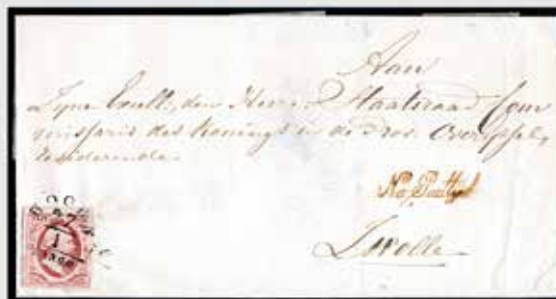 Aan
Zyne Excell:, den Heer Staatsraad Com
missaris des Konings in de Prov. Overyssel,
Residerende
Na Posttyd
Zwolle
1